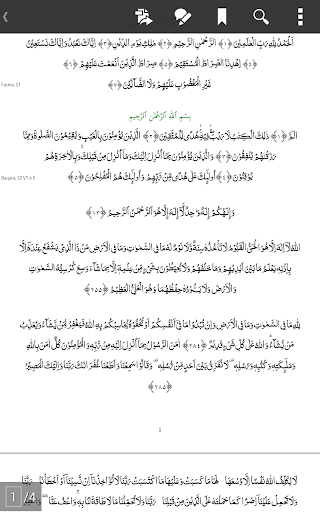 اَلْحَمْدُ لِلّٰهِ رَبِّ الْعٰلَمِيْنَ ﴿١﴾ الرَّحْمٰنِ الرَّحِيْمِ ﴿٢﴾ مٰلِكِ يَوْمِ الدِّيْنِ ﴿٣﴾ اِيَّاكَ نَعْبُدُ وَاِيَّاكَ نَسْتَعِيْنُ
﴿٤﴾ اِهْدِنَا الصِّرَاطَ الْمُسْتَقِيْمَ ﴿٥﴾ صِرَاطَ الَّذِيْنَ اَنْعَمْتَ عَلَيْهِمْ ﴿٦﴾
Fatiha, S1
غَيْرِ الْمَغْضُوْبِ عَلَيْهِمْ وَلَا الضَّآلِّيْنَ ﴿٧﴾
بِسْمِ اللّٰهِ الرَّحْمٰنِ الرَّحِيْمِ
الٓمّٓ ﴿١﴾ ذٰلِكَ الْكِتٰبُ لَا رَيْبَ فِيْهِ هُدًى لِّلْمُتَّقِيْنَ ﴿٢﴾ الَّذِيْنَ يُؤْمِنُوْنَ بِالْغَيْبِ وَيُقِيْمُوْنَ الصَّلٰوةَ وَمِمَّا
رَزَقْنٰهُمْ يُنْفِقُوْنَ ﴿٣﴾ وَالَّذِيْنَ يُؤْمِنُوْنَ بِمَآ اُنْزِلَ اِلَيْكَ وَمَآ اُنْزِلَ مِنْ قَبْلِكَ وَبِالْاٰخِرَةِ هُمْ
Baqara, S2 V1 a 5
يُوْقِنُوْنَ ﴿٤﴾ اُولٰٓئِكَ عَلٰى هُدًى مِّنْ رَّبِّهِمْ وَاُولٰٓئِكَ هُمُ الْمُفْلِحُوْنَ ﴿٥﴾
وَاِلٰهُكُمْ اِلٰهٌ وَّاحِدٌ لَآ اِلٰهَ اِلَّا هُوَ الرَّحْمٰنُ الرَّحِيْمُ ﴿١٦٣﴾
اَللّٰهُ لَآ اِلٰهَ اِلَّا هُوَ الْحَيُّ الْقَيُّوْمُ لَا تَأْخُذُهٗ سِنَةٌ وَّلَا نَوْمٌ لَهٗ مَا فِي السَّمٰوٰتِ وَمَا فِي الْاَرْضِ مَنْ ذَا الَّذِيْ يَشْفَعُ عِنْدَهٗٓ اِلَّا
بِاِذْنِهٖ يَعْلَمُ مَا بَيْنَ اَيْدِيْهِمْ وَمَا خَلْفَهُمْ وَلَا يُحِيْطُوْنَ بِشَيْءٍ مِّنْ عِلْمِهٖٓ اِلَّا بِمَا شَآءَ وَسِعَ كُرْسِيُّهُ السَّمٰوٰتِ
وَالْاَرْضَ وَلَا يَـُٔوْدُهٗ حِفْظُهُمَا وَهُوَ الْعَلِيُّ الْعَظِيْمُ ﴿٢٥٥﴾
لِلّٰهِ مَا فِي السَّمٰوٰتِ وَمَا فِي الْاَرْضِ وَاِنْ تُبْدُوْا مَا فِيْٓ اَنْفُسِكُمْ اَوْ تُخْفُوْهُ يُحَاسِبْكُمْ بِهِ اللّٰهُ فَيَغْفِرُ لِمَنْ يَّشَآءُ وَيُعَذِّبُ
مَنْ يَّشَآءُ وَاللّٰهُ عَلٰى كُلِّ شَيْءٍ قَدِيْرٌ ﴿٢٨٤﴾ اٰمَنَ الرَّسُوْلُ بِمَآ اُنْزِلَ اِلَيْهِ مِنْ رَّبِّهٖ وَالْمُؤْمِنُوْنَ كُلٌّ اٰمَنَ بِاللّٰهِ
وَمَلٰٓئِكَتِهٖ وَكُتُبِهٖ وَرُسُلِهٖ لَا نُفَرِّقُ بَيْنَ اَحَدٍ مِّنْ رُّسُلِهٖ وَقَالُوْا سَمِعْنَا وَاَطَعْنَا غُفْرَانَكَ رَبَّنَا وَاِلَيْكَ الْمَصِيْرُ
﴿٢٨٥﴾
1
لَا يُكَلِّفُ اللّٰهُ نَفْسًا اِلَّا وُسْعَهَا لَهَا مَا كَسَبَتْ وَعَلَيْهَا مَا اكْتَسَبَتْ رَبَّنَا لَا تُؤَاخِذْنَآ اِنْ نَّسِيْنَآ اَوْ اَخْطَأْنَا رَبَّنَا
وَلَا تَحْمِلْ عَلَيْنَآ اِصْرًا كَمَا حَمَلْتَهٗ عَلَى الَّذِيْنَ مِنْ قَبْلِنَا رَبَّنَا وَلَا تُحَمِّلْنَا مَا لَا طَاقَةَ لَنَا بِهٖ وَاعْفُ عَنَّا
1 /4